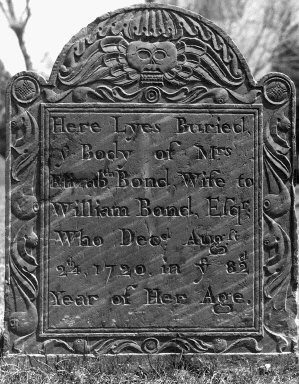 Here Lyes Buried,
yᵉ Body of Mʳˢ
Elizabᵗʰ Bond, Wife to
William Bond, Eſqʳ,
Who Decˢᵈ Augˢᵗ
24ᵗʰ, 1720, in yᵉ 82ᵈ
Year of Her Age.